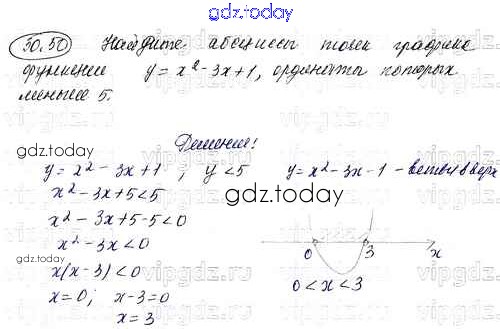 gdz.today
30.50 Найдите абсциссы точек графика
функции y = x² - 3x + 1, ординаты которых
меньше 5.
Решение!
gdz.today
y = x² - 3x + 1 ; y < 5 y = x² - 3x - 1 - ветви вверх
x² - 3x + 5 < 5
gdz.today
x² - 3x + 5 - 5 < 0
x² - 3x < 0
x(x - 3) < 0 0 3 x
x = 0; x - 3 = 0 0 < x < 3
x = 3
gdz.today
vipgdz.ru